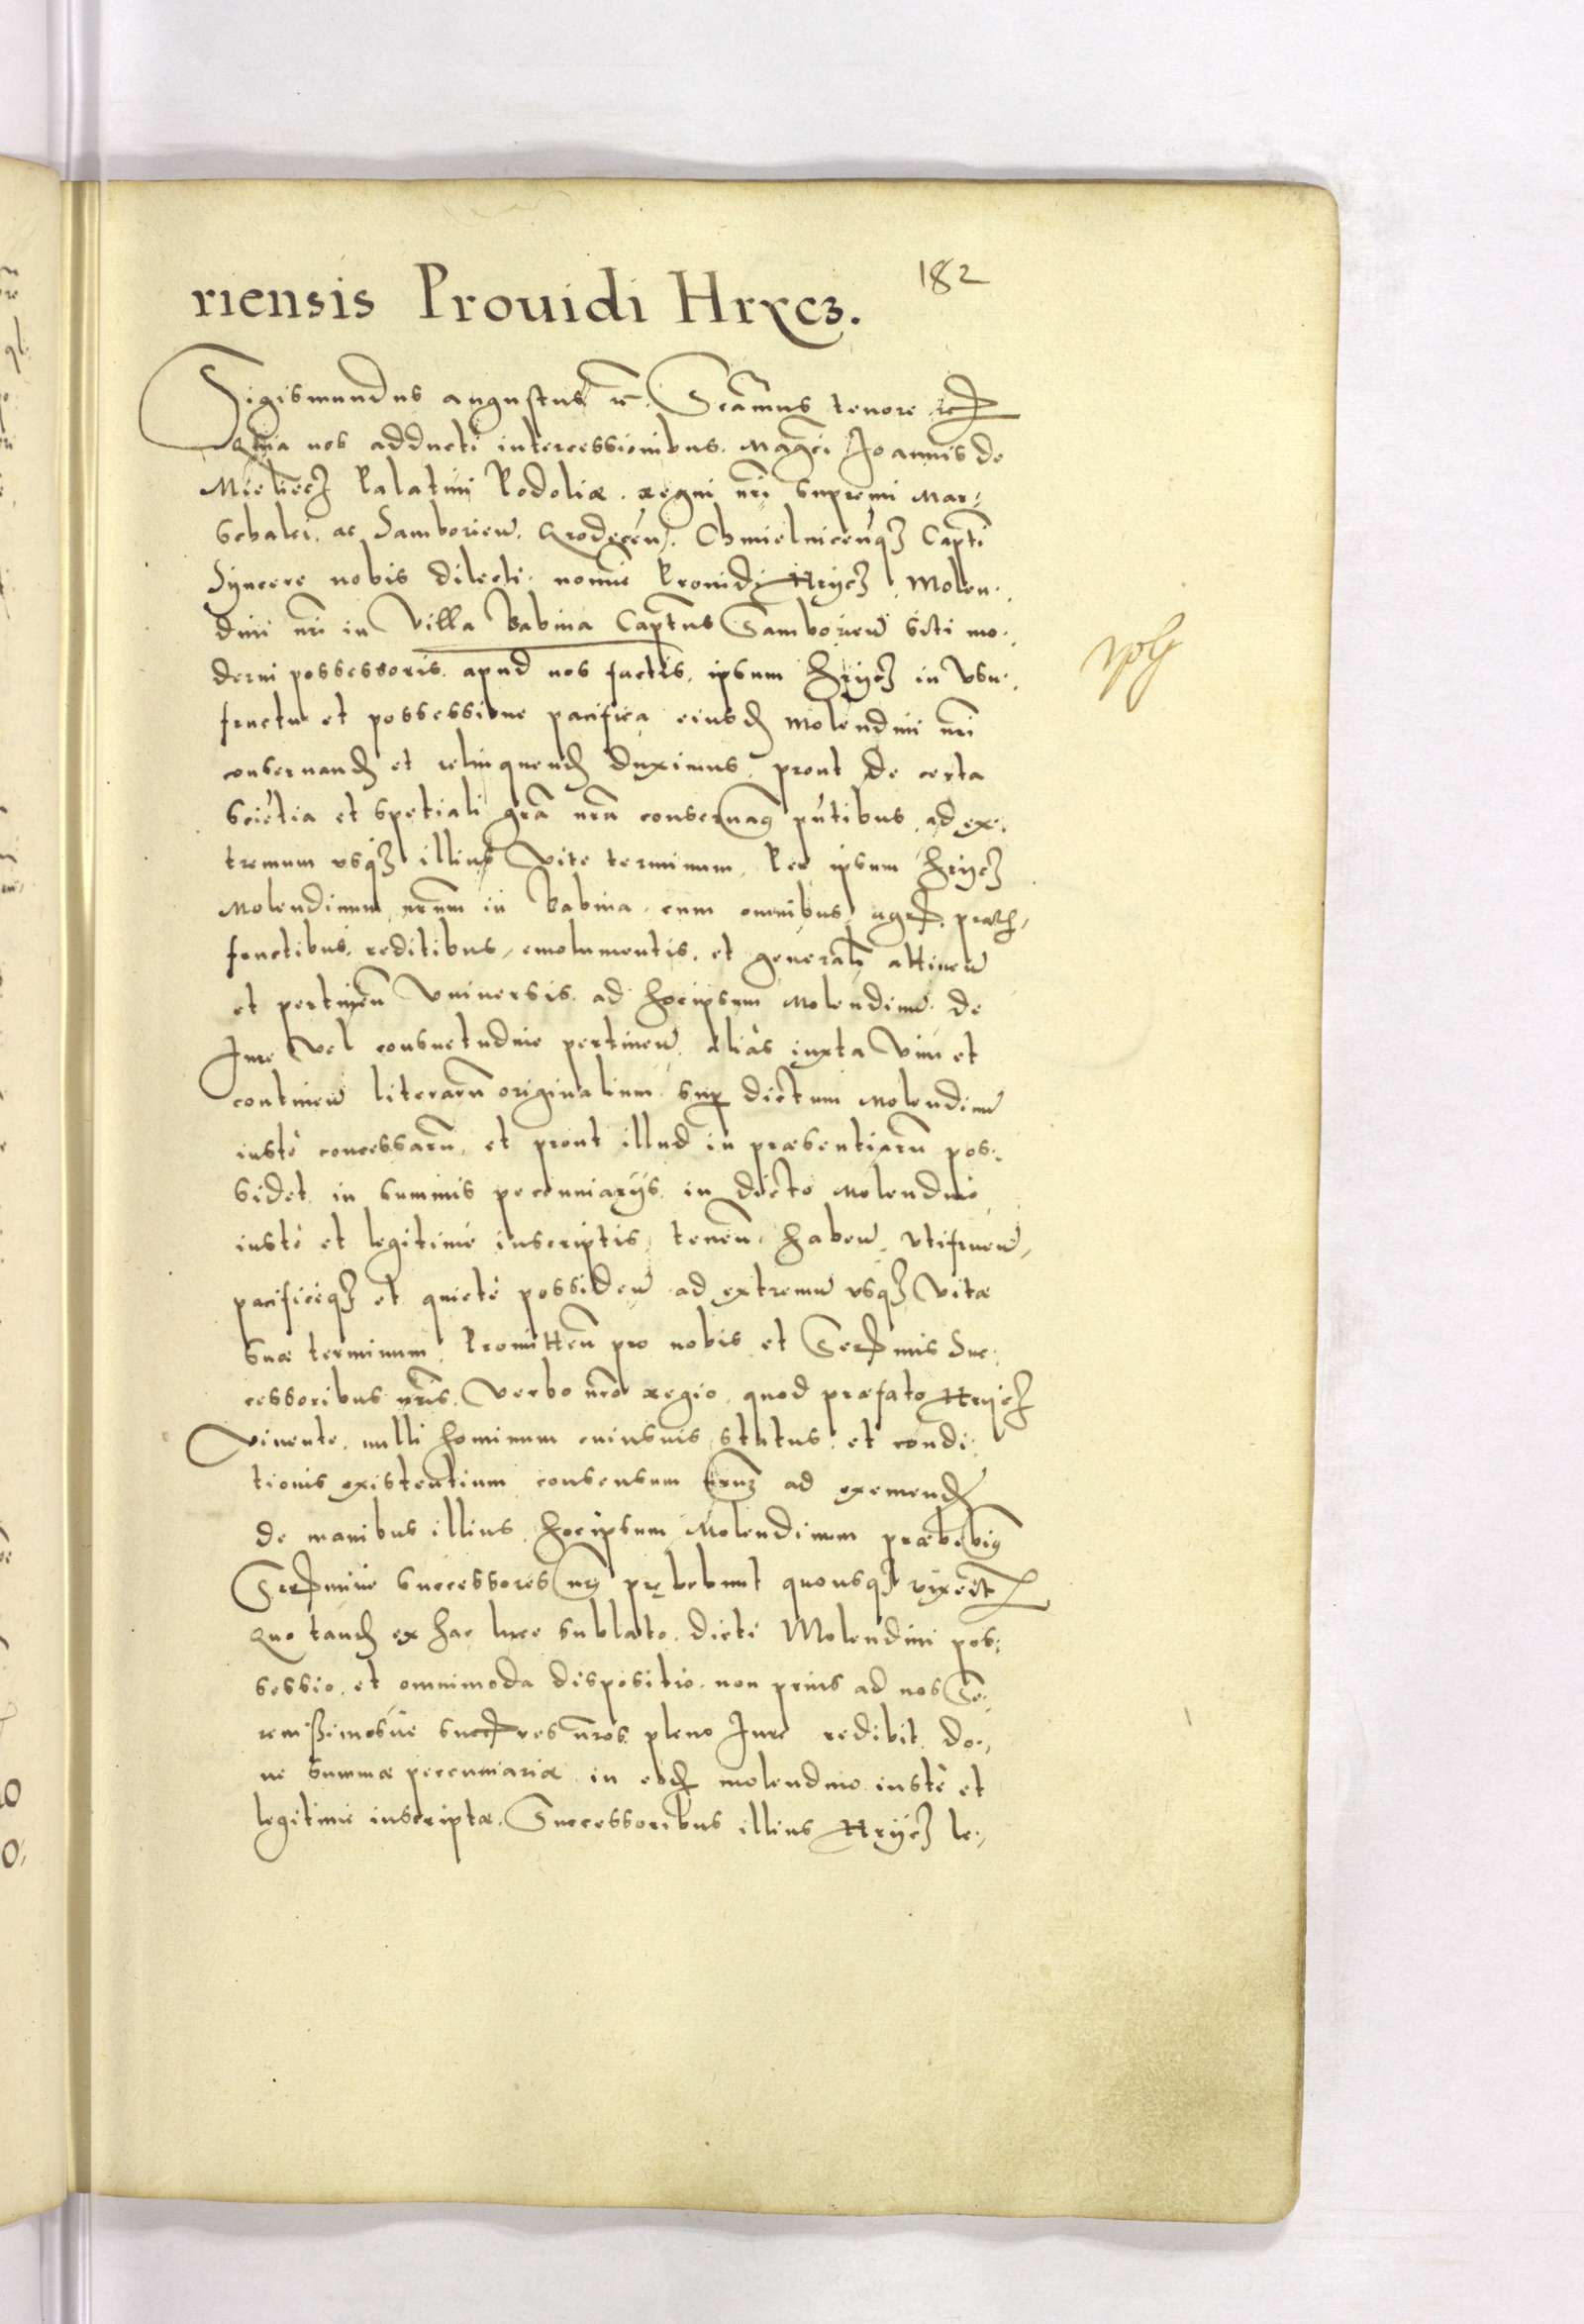 182
riensis Prouidi Hrycz.
Sigismundus augustus etc. Significamus tenore etc
Quia nos adducti intercessionibus Magci Joannis de
Mieliecz Palatini Podoliæ. regni nri supremi Mar-
schalci. ac Samborien. Grodecen. Chmielnicenqz Capti
Syncere nobis dilecti. nomine Prouidi Hrycz Molen-
dini nri in Villa Babina Captus Samborien siti mo-
derni possessoris apud nos factis, ipsum Hrycz in Vsu-
fructu et possessione pacifica eiusd Molendini nri
conseruand et relinquend duximus, prout de certa
scietia et spetiali gra nra conseruamg pntibus, ad ex-
tremum vsqz illius Vite terminum, Per ipsum Hrycz
Molendinum nrum in Babina cum omnibus agr. prat.
fructibus, reditibus, emolumentis, et generalr attinen
et pertinen Vniuersis ad hocipsum Molendinu de
Jure Vel consuetudine pertinen, aliàs iuxta Vim et
continen literaru originalium sup dictum Molendinu
iustè concessaru, et prout illud in præsentiaru pos-
sidet in summis pecuniarijs in dicto Molendino
iustè et legitimè inscriptis, tenen haben Vtifruen,
pacificèqz et quietè possiden ad extremu vsqz Vitæ
suæ terminum, Promitten pro nobis et Sermis Suc-
cessoribus nris, Verbo nro regio quod præfato Hrycz
Viuente, nulli hominum cuiusuis status et condi-
tionis existentium consensum nrum ad exemend
de manibus illius, hocipsum Molendinum præbebimg
Sermiue successores nri prębebunt quousqz vixerit
Quo tand ex hac luce sublato, dicti Molendini pos-
sessio, et omnimoda dispositio non prius ad nos Se-
renissimosue succres nros pleno Jure redibit do-
ne summæ pecuniariæ in eod molendino iustè et
legitimè inscriptæ, Successoribus illius Hrycz le-